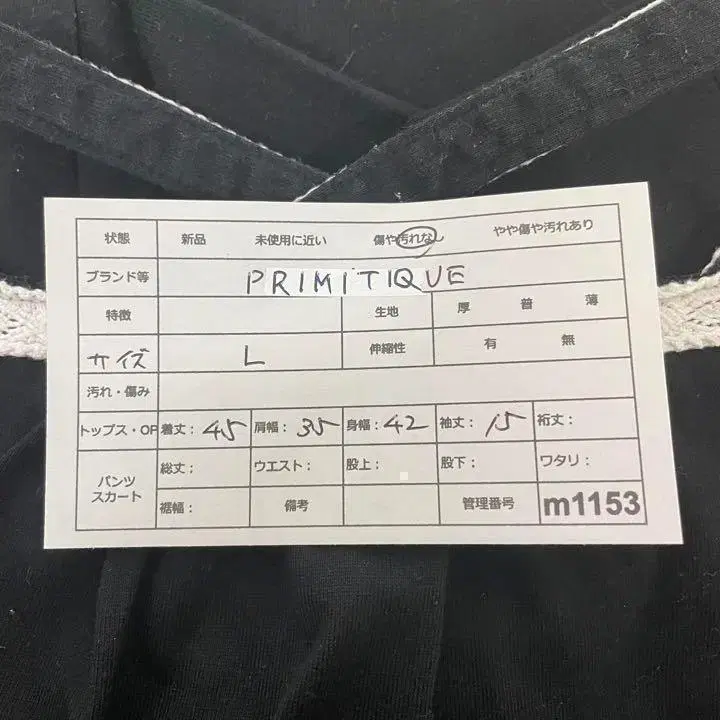 状態 新品 未使用に近い 傷や汚れなし やや傷や汚れあり
ブランド等 PRIMITIQUE
特徴 生地 厚 普 薄
サイズ L 伸縮性 有 無
汚れ・傷み
トップス・OP 着丈: 45 肩幅: 35 身幅: 42 袖丈: 15 裄丈:
パンツ スカート 総丈: ウエスト: 股上: 股下: ワタリ:
裾幅: 備考 管理番号 m1153